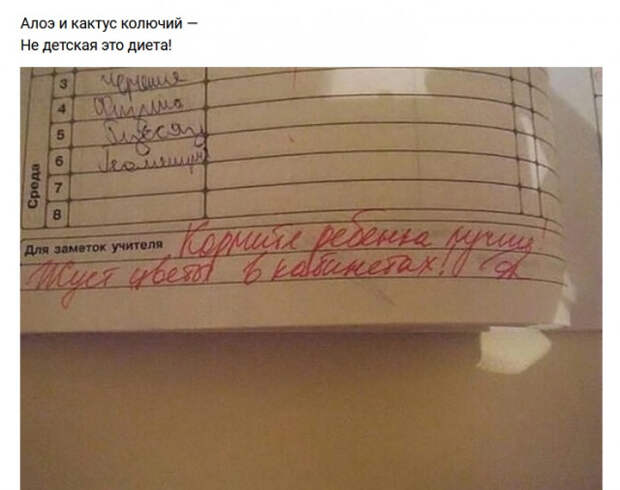 Алоэ и кактус колючий —
Не детская это диета!
3 черчение
4 Физика
5
6
7
8
Среда
Для заметок учителя Кормите ребенка лучше!
Жует цветы в кабинетах!